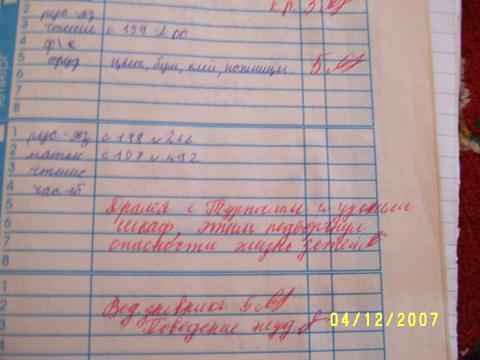 2 к.р. 3
3 рус-яз
чтение с 199-200
4 ф/к
5 труд цвет, бум, клей, ножницы 5
6
7
8
четверг
1 рус-яз с 118 № 266
2 матем с 107 № 492
3 чтение
4 час-об
5 Дрался с Турпалом и уронили
6 шкаф, этим подвергнул
7 опасности жизнь детей.
8
1
2 Вед. дневника 5
3 Поведение неуд.
04/12/2007